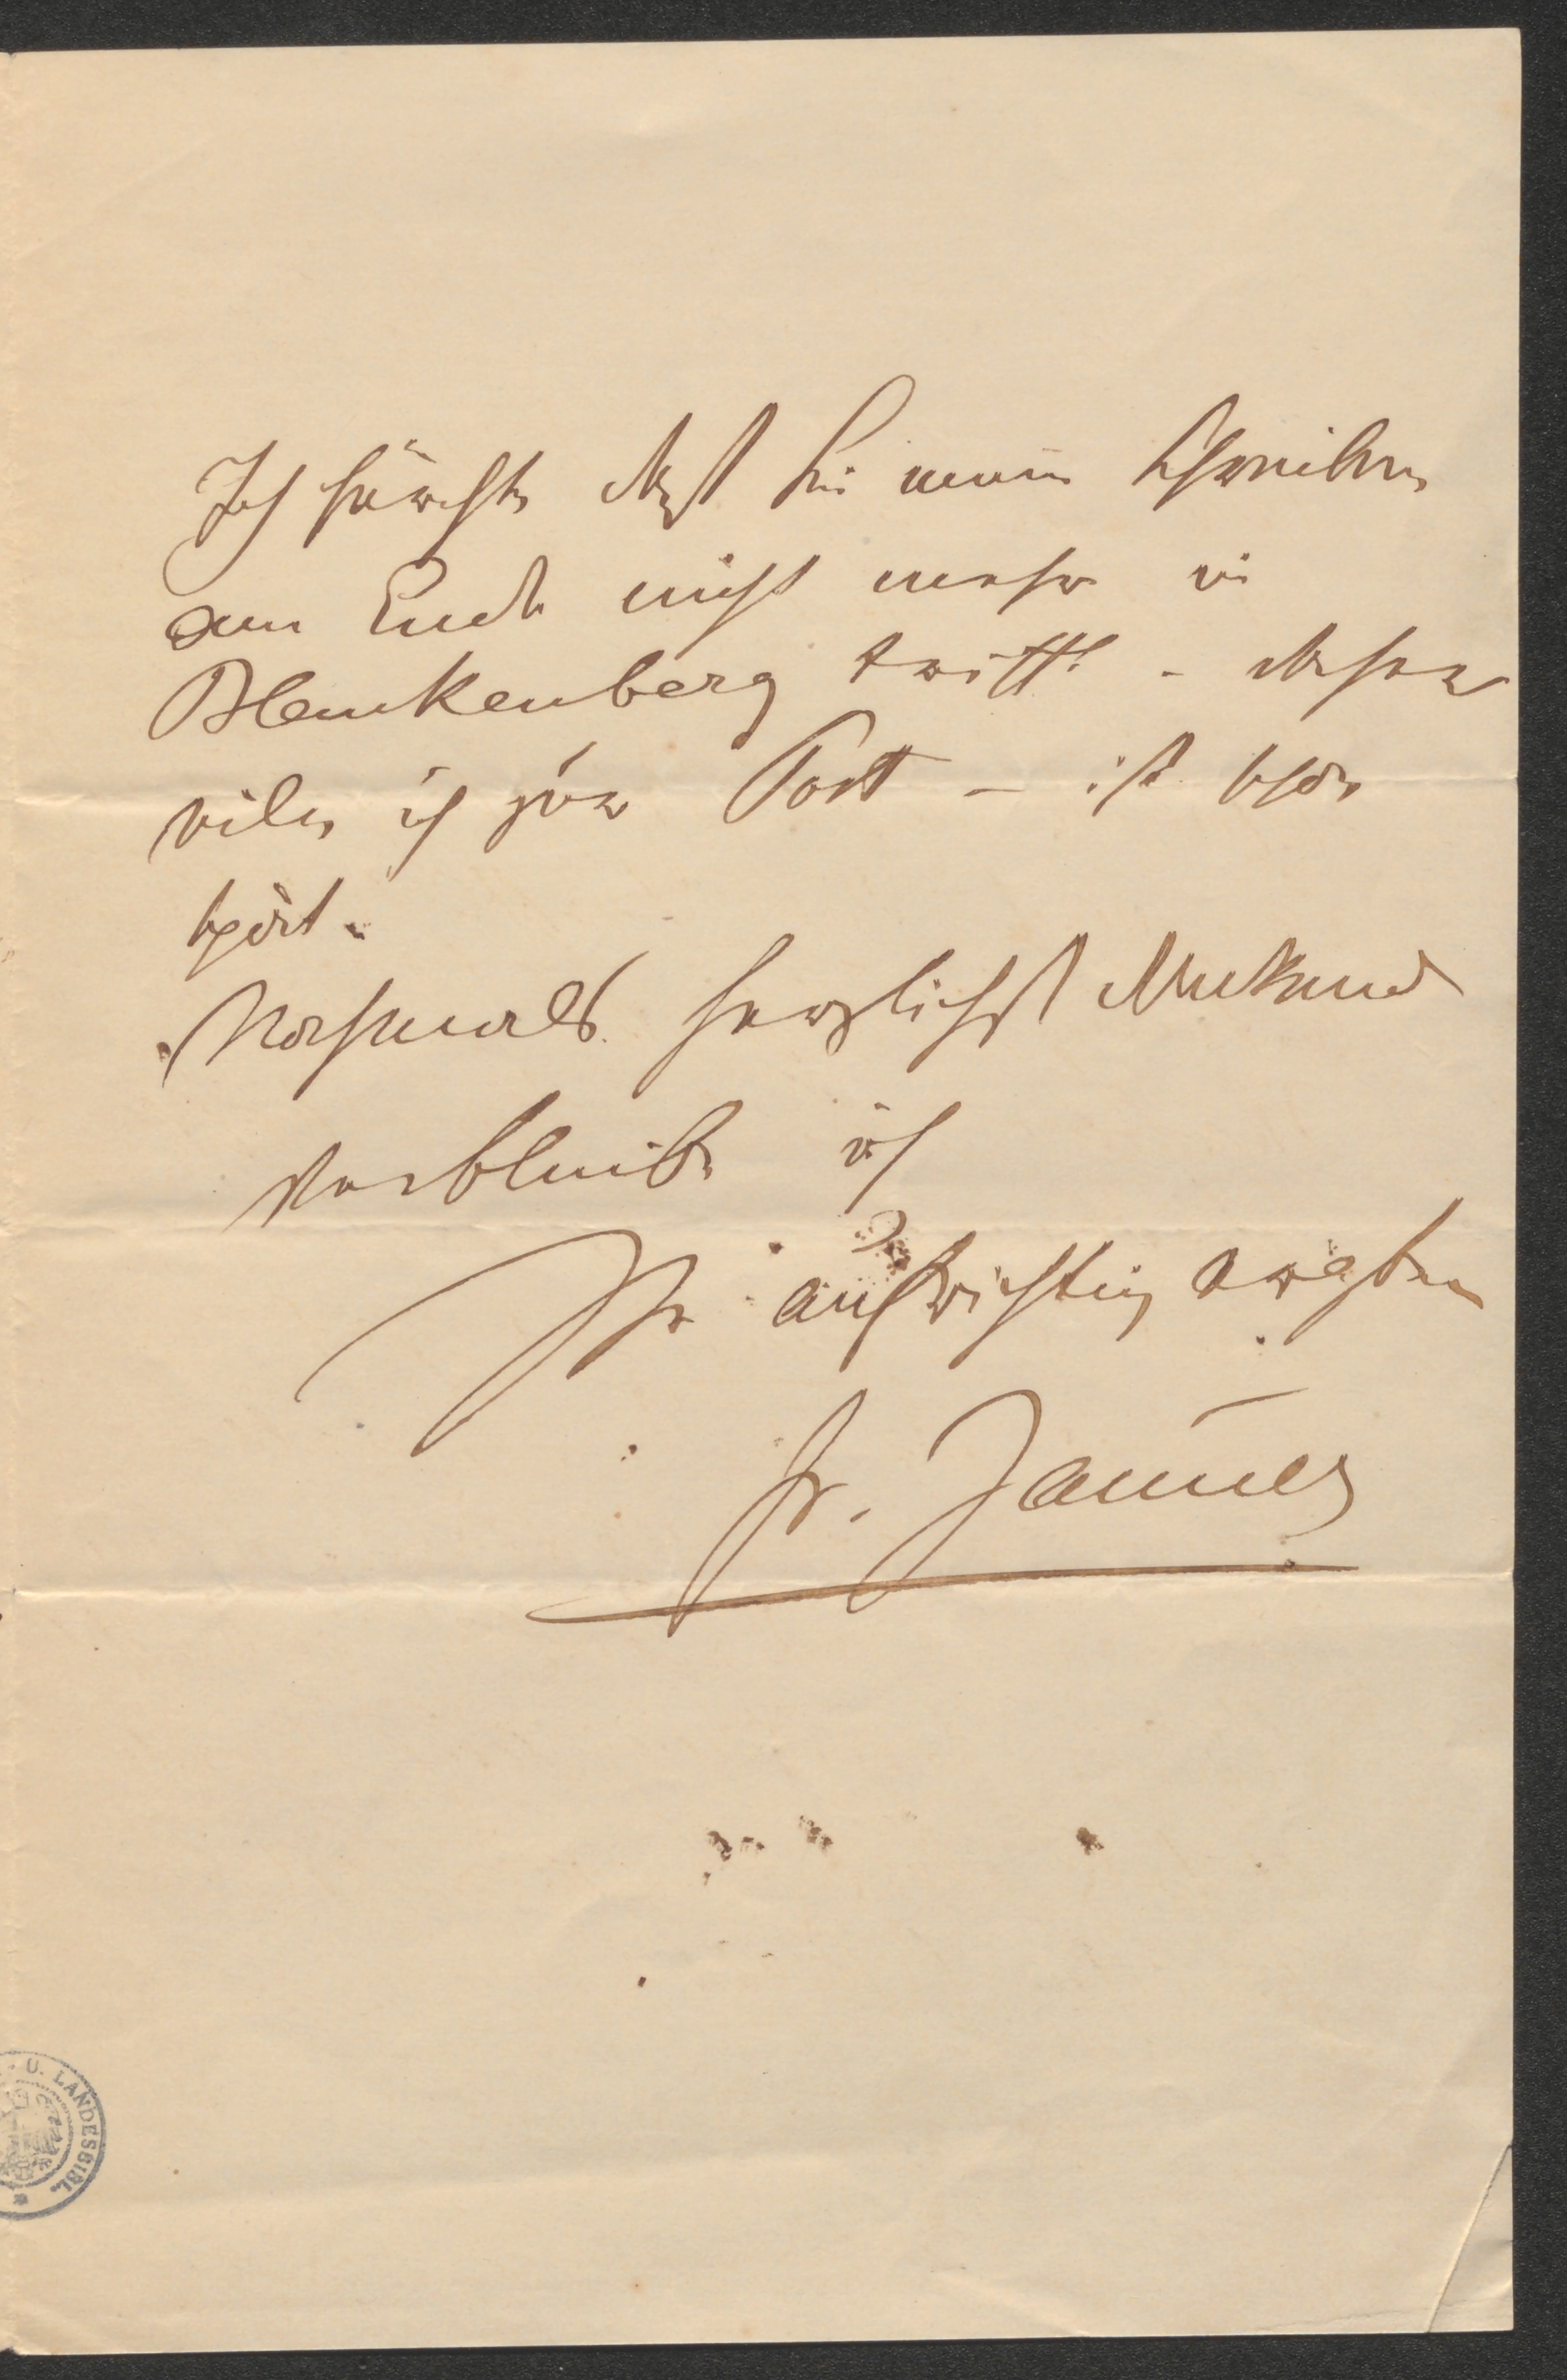 Ich fürchte daß Sie mein Schreiben
am Ende nicht mehr in
Blankenberg trifft - daher
eile ich zur Post - ist schon
spät.
Nochmals herzlichst dankend
verbleibe ich
Ihr aufrichtig ergebener
Fr. Jauner
U. LANDESBIBL.